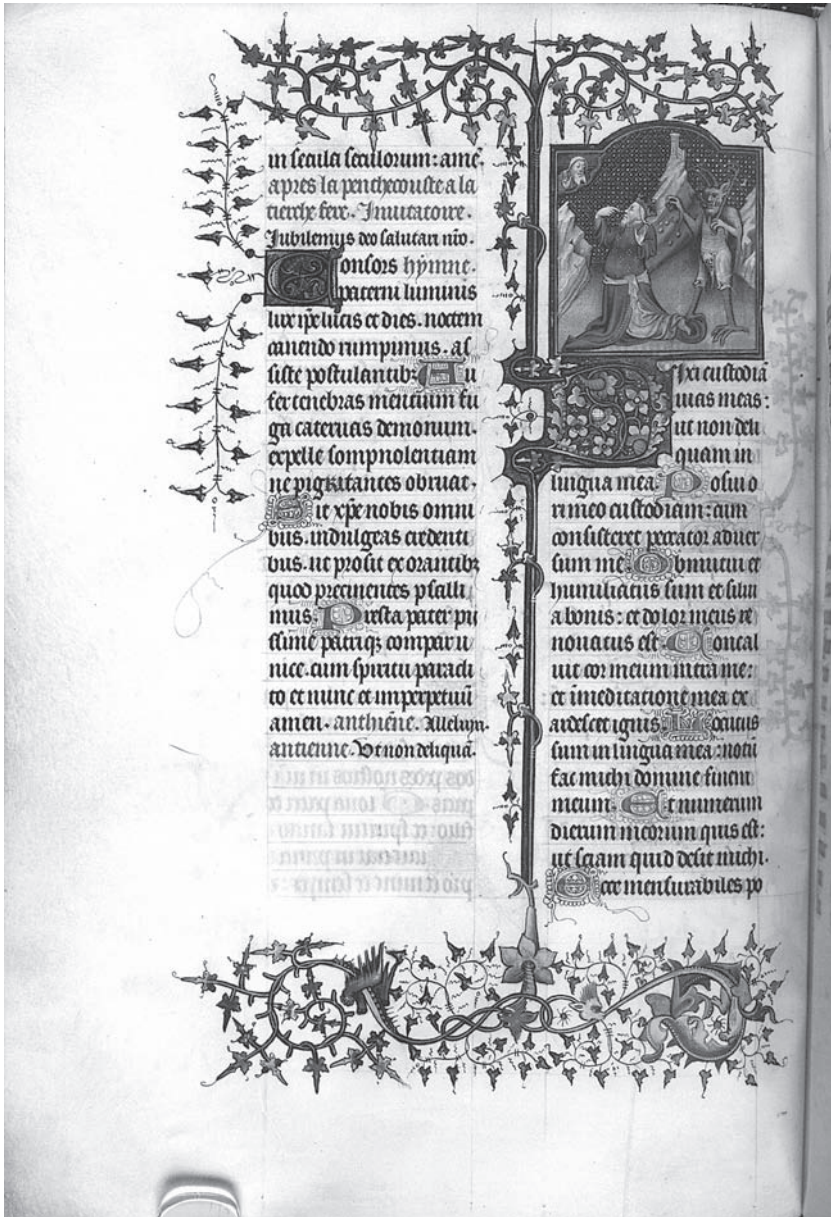 in secula seculorum: amē.
apres la penthecouste a la
tierche fere. Inuitatoire.
Iubilemus deo salutari nr̄o.
Consors hymne.
paterni luminis
lux ip̄e lucis et dies. noctem
canendo rumpimus. as
siste postulantibꝫ Au
fer tenebras mentium fu
ga cateruas demonum.
expelle sompnolentiam
ne pigritantes obruat.
Sit xp̄e nobis omni
bus. indulgeas credenti
bus. ut prosit exorantibꝫ
quod precinentes psalli
mus. Presta pater pii
ssime patriqꝫ compar u
nice. cum spiritu paracli
to et nunc et imperpetuū
amen. anthiēne. Alleluya.
antienne. Vt non delinquā.
Dixi custodiā
uias meas:
ut non deli
quam in
lingua mea. Posui o
ri meo custodiam: cum
consisteret peccator aduer
sum me. Obmutui et
humiliatus sum et silui
a bonis: et dolor meus re
nouatus est. Concal
uit cor meum intra me:
et ī meditacione mea ex
ardescet ignis. Locutus
sum in lingua mea: notū
fac michi domine finem
meum. Et numerum
dierum meorum quis est:
ut sciam quid desit michi.
Ecce mensurabiles po